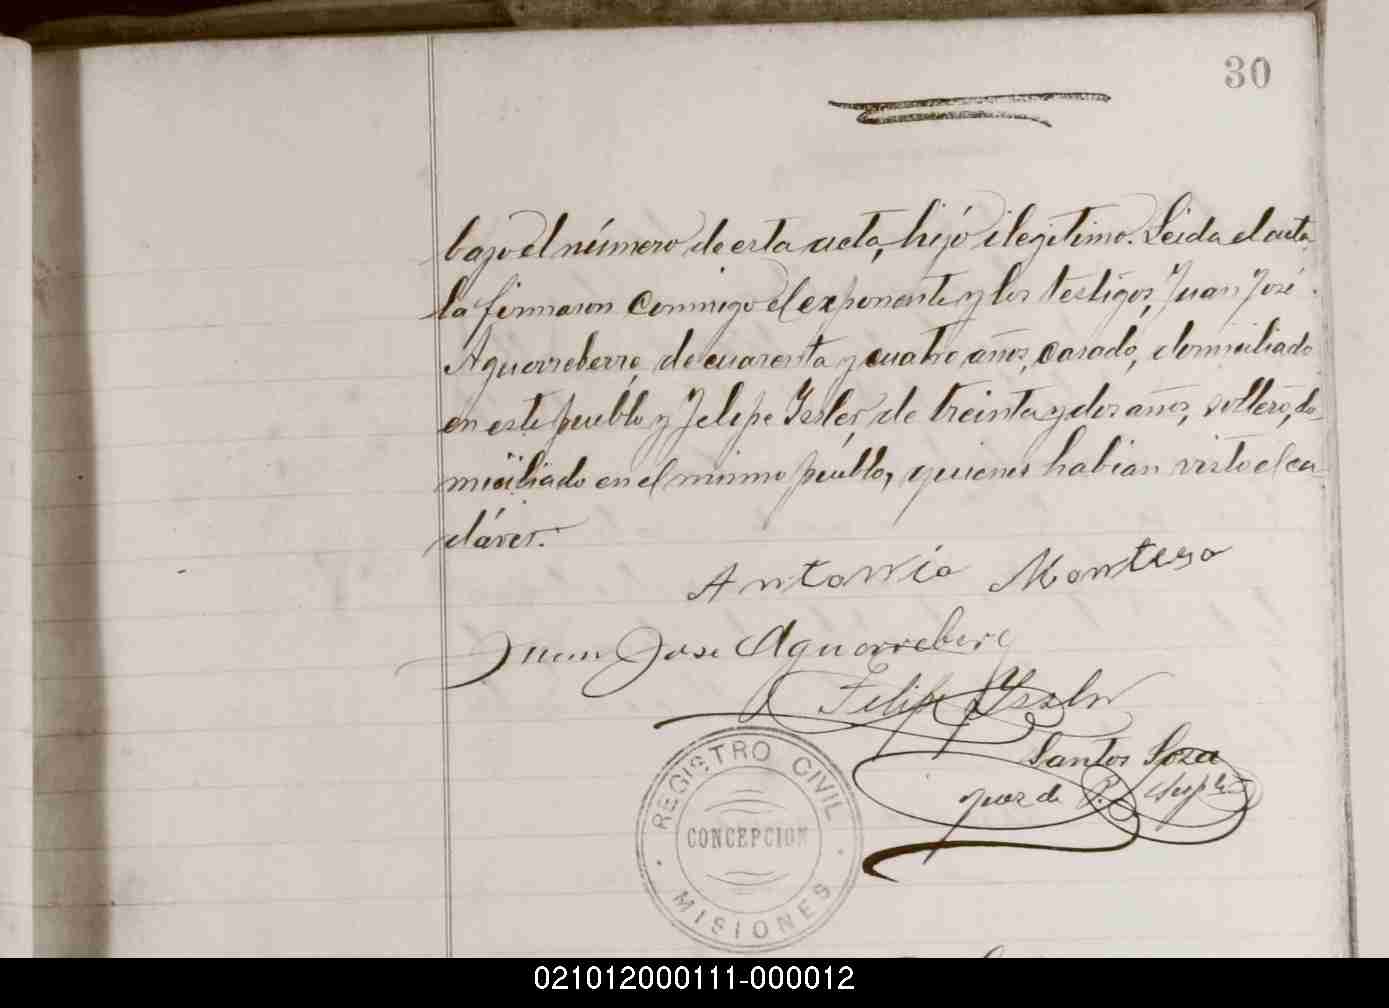 30
bajo el número de esta acta, hijo ilegitimo. Leida el acta
la firmaron conmigo el exponente y los testigos, Juan José
Aguerreberre, de cuarenta y cuatro años, casado, domiciliado
en este pueblo y Felipe Yssler, de treinta y dos años, soltero, do-
miciliado en el mismo pueblo, quienes habian visto el ca-
dáver.
Antonio Montero
Juan Jose Aguerrebere
Felipe Yssler
Santos Soza
Juez de P. Suplte
REGISTRO CIVIL
CONCEPCION
MISIONES
021012000111-000012